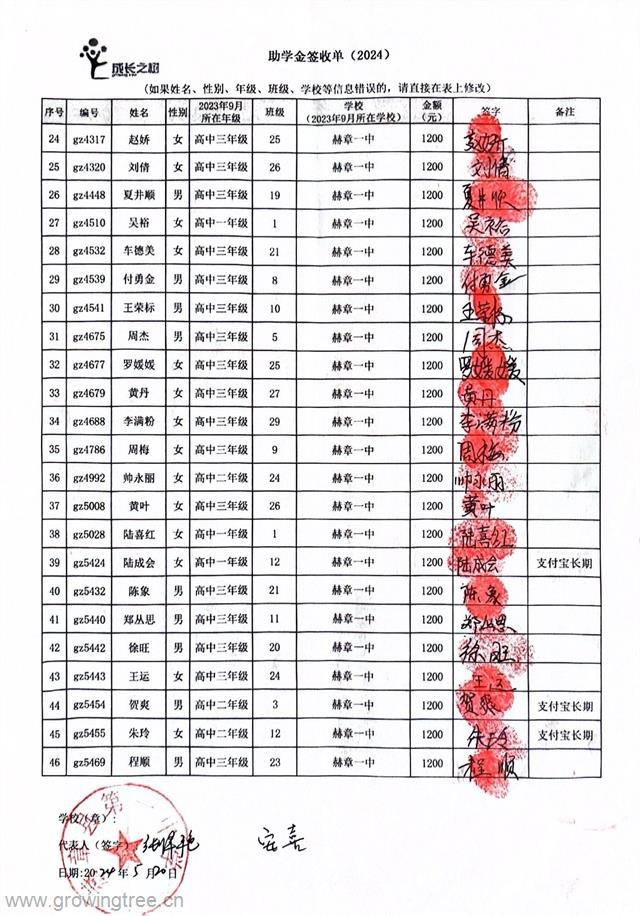 成长之树
助学金签收单（2024）
(如果姓名、性别、年级、班级、学校等信息错误的，请直接在表上修改)
序号 编号 姓名 性别 2023年9月所在年级 班级 学校（2023年9月所在学校） 金额（元） 签字 备注
24 gz4317 赵娇 女 高中三年级 25 赫章一中 1200 赵娇
25 gz4320 刘倩 女 高中三年级 26 赫章一中 1200 刘倩
26 gz4448 夏井顺 男 高中三年级 19 赫章一中 1200 夏井顺
27 gz4510 吴裕 女 高中一年级 1 赫章一中 1200 吴裕
28 gz4532 车德美 女 高中三年级 21 赫章一中 1200 车德美
29 gz4539 付勇金 男 高中三年级 8 赫章一中 1200 付勇金
30 gz4541 王荣标 男 高中三年级 10 赫章一中 1200 王荣标
31 gz4675 周杰 男 高中三年级 5 赫章一中 1200 周杰
32 gz4677 罗媛媛 女 高中三年级 25 赫章一中 1200 罗媛媛
33 gz4679 黄丹 女 高中三年级 27 赫章一中 1200 黄丹
34 gz4688 李满粉 女 高中三年级 29 赫章一中 1200 李满粉
35 gz4786 周梅 女 高中三年级 9 赫章一中 1200 周梅
36 gz4992 帅永丽 女 高中二年级 24 赫章一中 1200 帅永丽
37 gz5008 黄叶 女 高中三年级 26 赫章一中 1200 黄叶
38 gz5028 陆喜红 女 高中一年级 1 赫章一中 1200 陆喜红
39 gz5424 陆成会 女 高中一年级 12 赫章一中 1200 陆成会 支付宝长期
40 gz5432 陈象 男 高中三年级 21 赫章一中 1200 陈象
41 gz5440 郑丛思 男 高中三年级 11 赫章一中 1200 郑丛思
42 gz5442 徐旺 男 高中三年级 20 赫章一中 1200 徐旺
43 gz5443 王运 女 高中三年级 24 赫章一中 1200 王运
44 gz5454 贺爽 男 高中二年级 3 赫章一中 1200 贺爽 支付宝长期
45 gz5455 朱玲 女 高中二年级 12 赫章一中 1200 朱玲 支付宝长期
46 gz5469 程顺 男 高中三年级 23 赫章一中 1200 程顺
学校（章）：
代表人（签字）： 安喜
日期:2024年5月20日
www.growingtree.cn